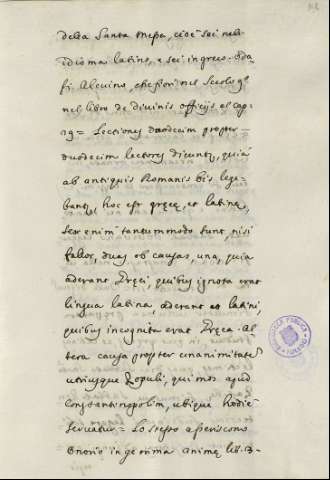 della Santa Messa, cioè sei nell'
idioma latino, e sei in greco. Così
Alcuino, che fiorì nel Secolo 9º
nel libro de divinis officijs al cap.
= Lectiones duodecim propter
duodecim lectores dicunt, quia
ab antiquis Romanis bis lege
bant, hoc est græce, et latine,
sex enim tantummodo sunt, nisi
fallor, duas ob causas, una, quia
aderant Græci, quibus ignota erat
lingua latina, aderant et latini,
quibus incognita erat Græca. Al
tera causa propter unanimitatem
utriusque Populi, qui mos apud
Constantinopolim, ubique hodie
servatur = Lo stesso asseriscono
Onorio in gemma animæ lib. 3 =